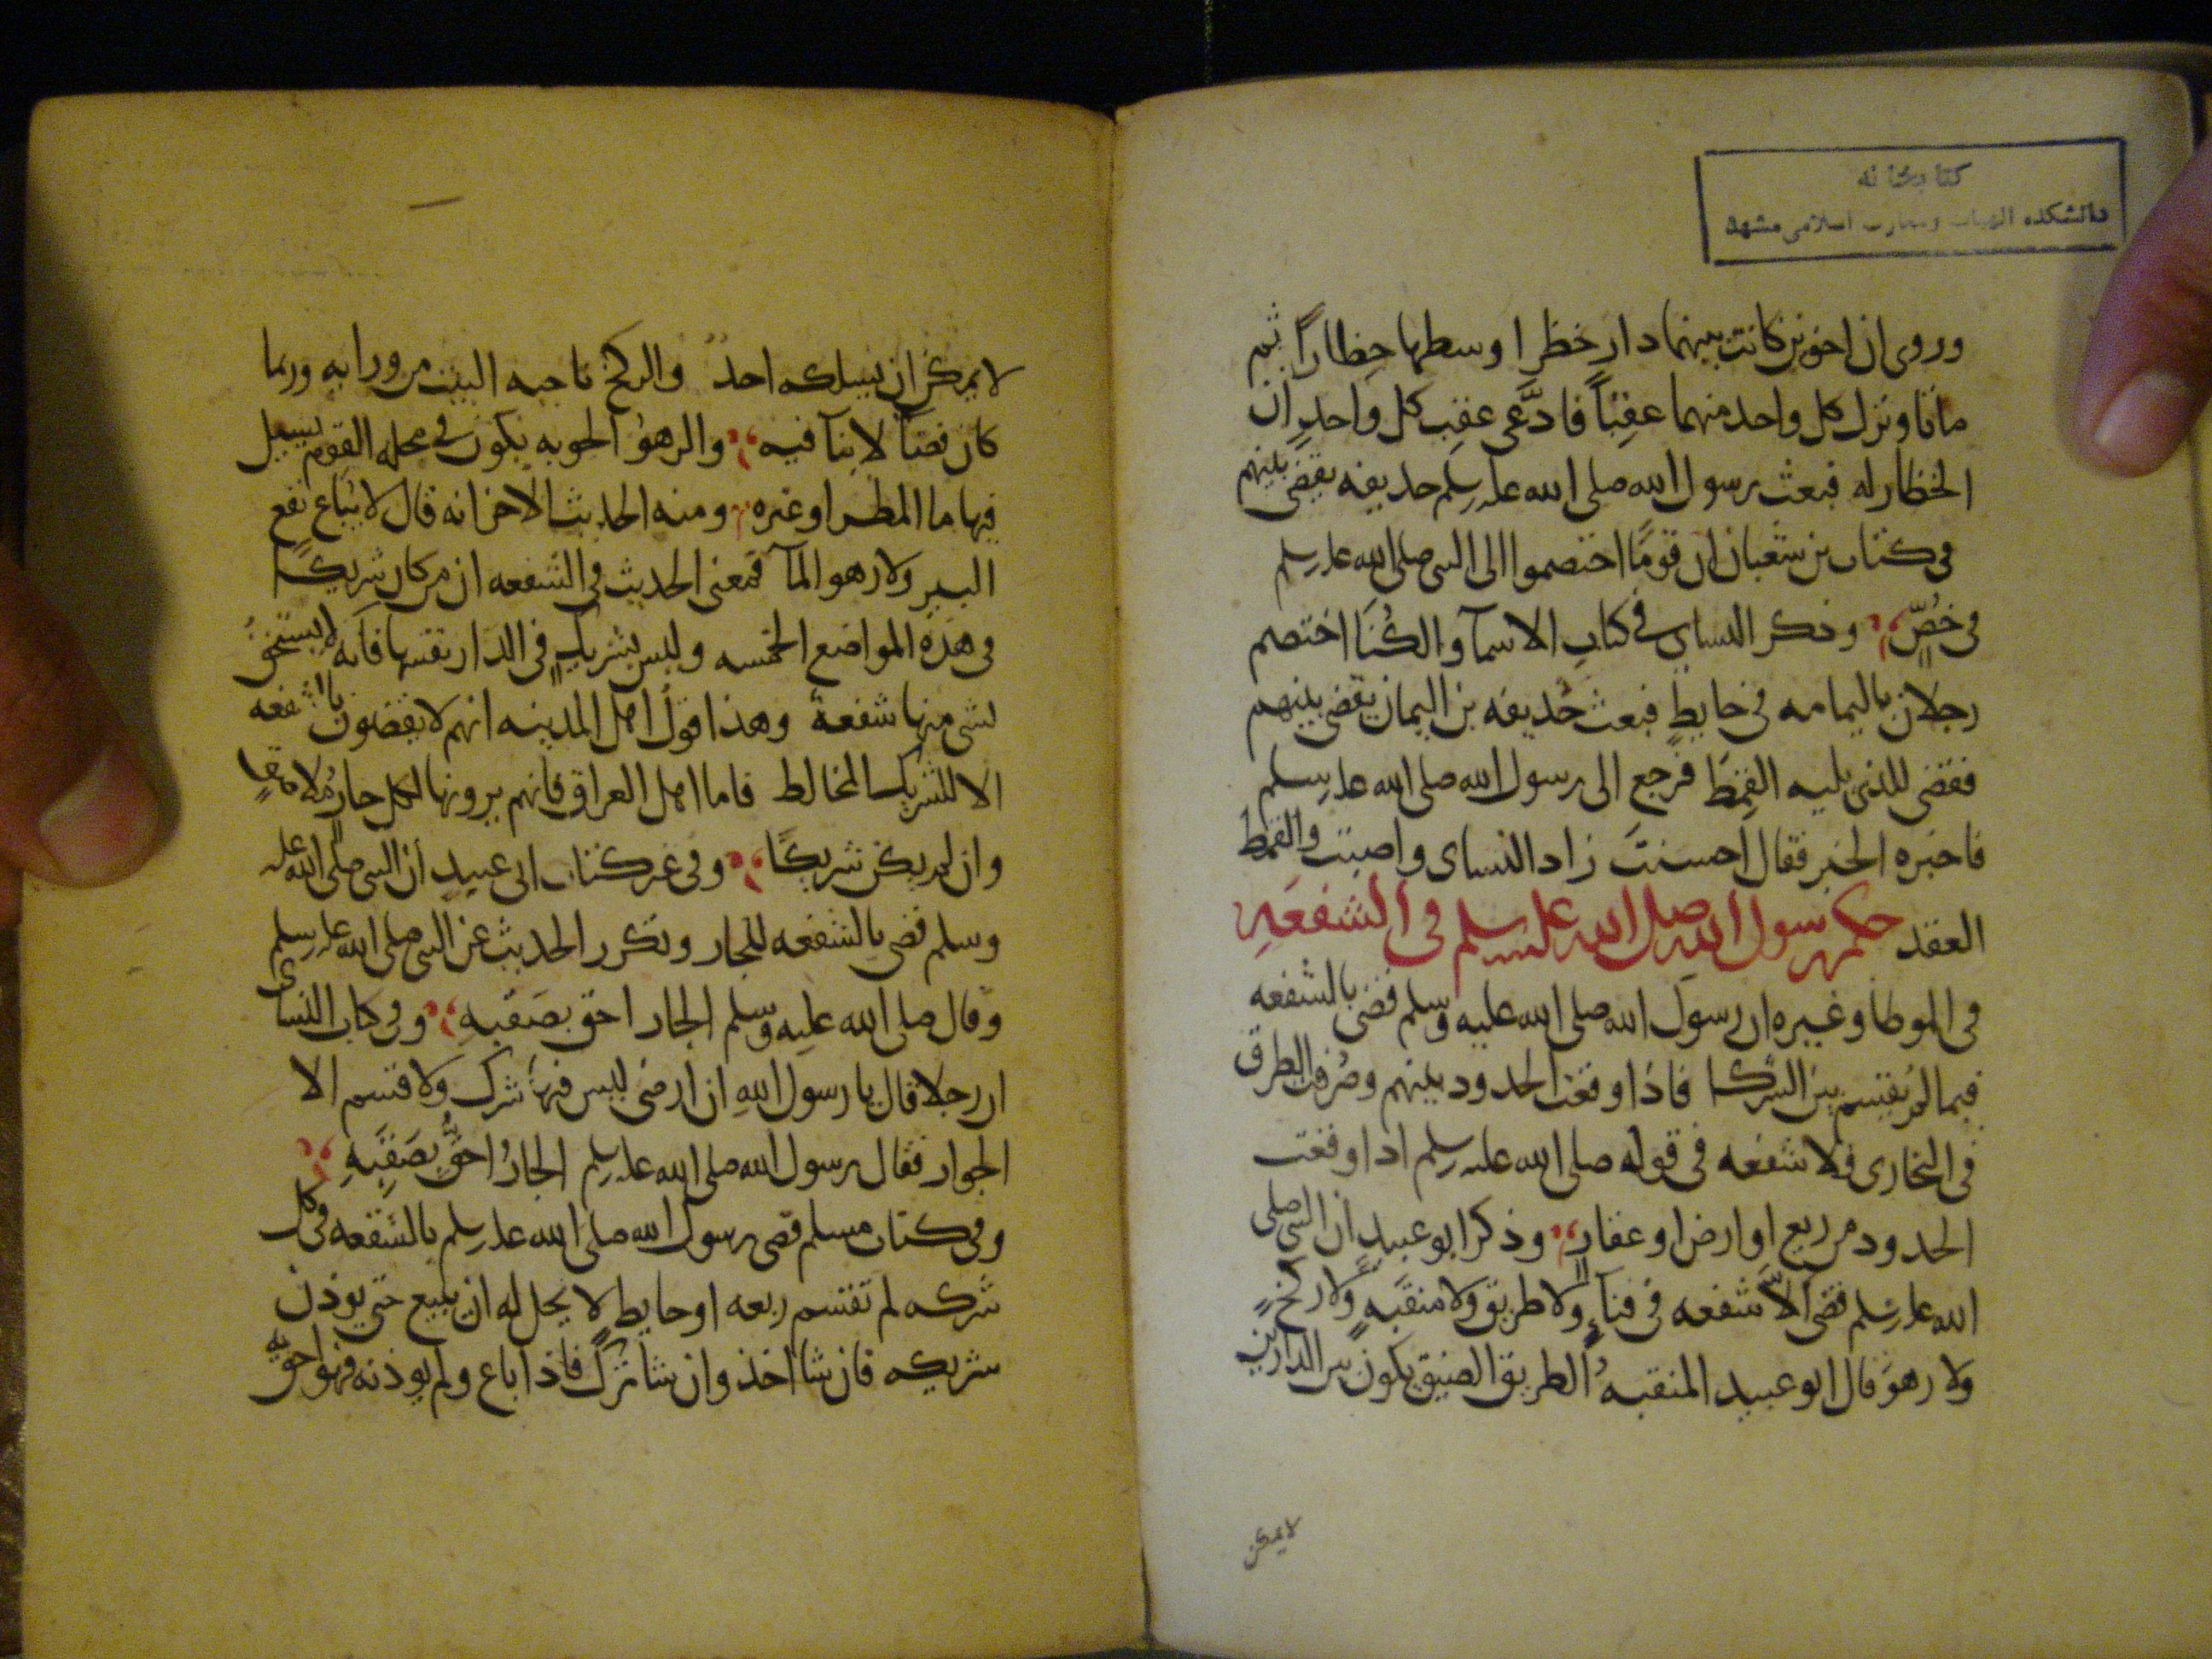 كتابخانه
دانشكده الهيات ومعارف اسلامى مشهد
وروى ان اخوين كانت بينهما دار خظرا وسطها حِظاراً ثم
ماتا وترك كل واحد منهما عقِبًا فادَّعى عقِب كل واحدٍ ان
الحظار له فبعث رسول الله صلى الله عليه وسلم حذيفه يقضى بينهم
فى كتاب بن شعبان ان قومًا اختصموا الى النبى صلى الله عليه وسلم
فى خُصٍّ وذكر النساى فى كتاب الاسمآ والكُنَا اختصم
رجلان باليمامه فى حايطٍ فبعث حُذيفه بن اليمان يقضى بينهم
فقضى للذى يليه القِمِط فرجع الى رسول الله صلى الله عليه وسلم
فاخبره الخبر فقال احسنتَ زاد النساى واصبت والقمط
العقد حكم رسول الله صلى الله عليه وسلم فى الشفعَهِ
فى الموطا وغيره ان رسول الله صلى الله عليه وسلم قضى بالشفعه
فيما لم يُقتسم بين الشركا فاذا وقعت الحدود بينهم وصُرفت الطرق
فى البخارى فلا شفعه فى قوله صلى الله عليه وسلم اذا وقعت
الحدود من ربع او ارض او عقار وذكر ابو عبيدٍ ان النبى صلى
الله عليه وسلم قضى الاّ شفعه فى فنآءٍ ولا طريق ولا منقبَهٍ ولا ركحٍ
ولا رهوَ قال ابو عبيد المنقبهُ الطريق الضيق يكون بين الدارين
لايمكن
لا يمكن ان يسلكه احد والركح ناحيه البيت من ورايه وربما
كان فضآ لا بنآ فيه والرهوُ الجوبه يكون فى محله القوم يسيل
فيها ما المطر او غيره ومنه الحديث الاخر انه قال لا يُباع نقع
البير ولا رهو المآ فمعنى الحديث فى الشفعه ان من كان شريكًا
فى هذه المواضع الخمسه وليس بشريكٍ فى الدار نفسها فانه لا يستحق
بشى منها شفعة وهذا قول اهل المدينه انهم لا يقضون بالشفعه
الا للشريك المخالط فاما اهل العراق فانهم يرونها لكل جارٍ مُلاصقٍ
وان لم يكن شريكًا وفى غير كتاب ابى عبيد ان النبى صلى الله عليه
وسلم قضى بالشفعه للجار وتكرر الحديث عن النبى صلى الله عليه وسلم
وقال صلى الله عليه وسلم الجار احق بصَقبه وفى كتاب النساى
ان رجلا قال يا رسول اللهِ ان ارضى ليس فيها شرك ولا قسم الا
الجوار فقال رسول الله صلى الله عليه وسلم الجارُ احقُّ بصَقِبَهِ
وفى كتاب مسلم قضى رسول الله صلى الله عليه وسلم بالشفعه فى كل
شركه لم تقتسم ربعه او حايطٍ لا يحل له ان يبيع حتى يوذن
شريكه فان شا اخذ وان شا ترك فاذا باع ولم يوذنه فهو احق به